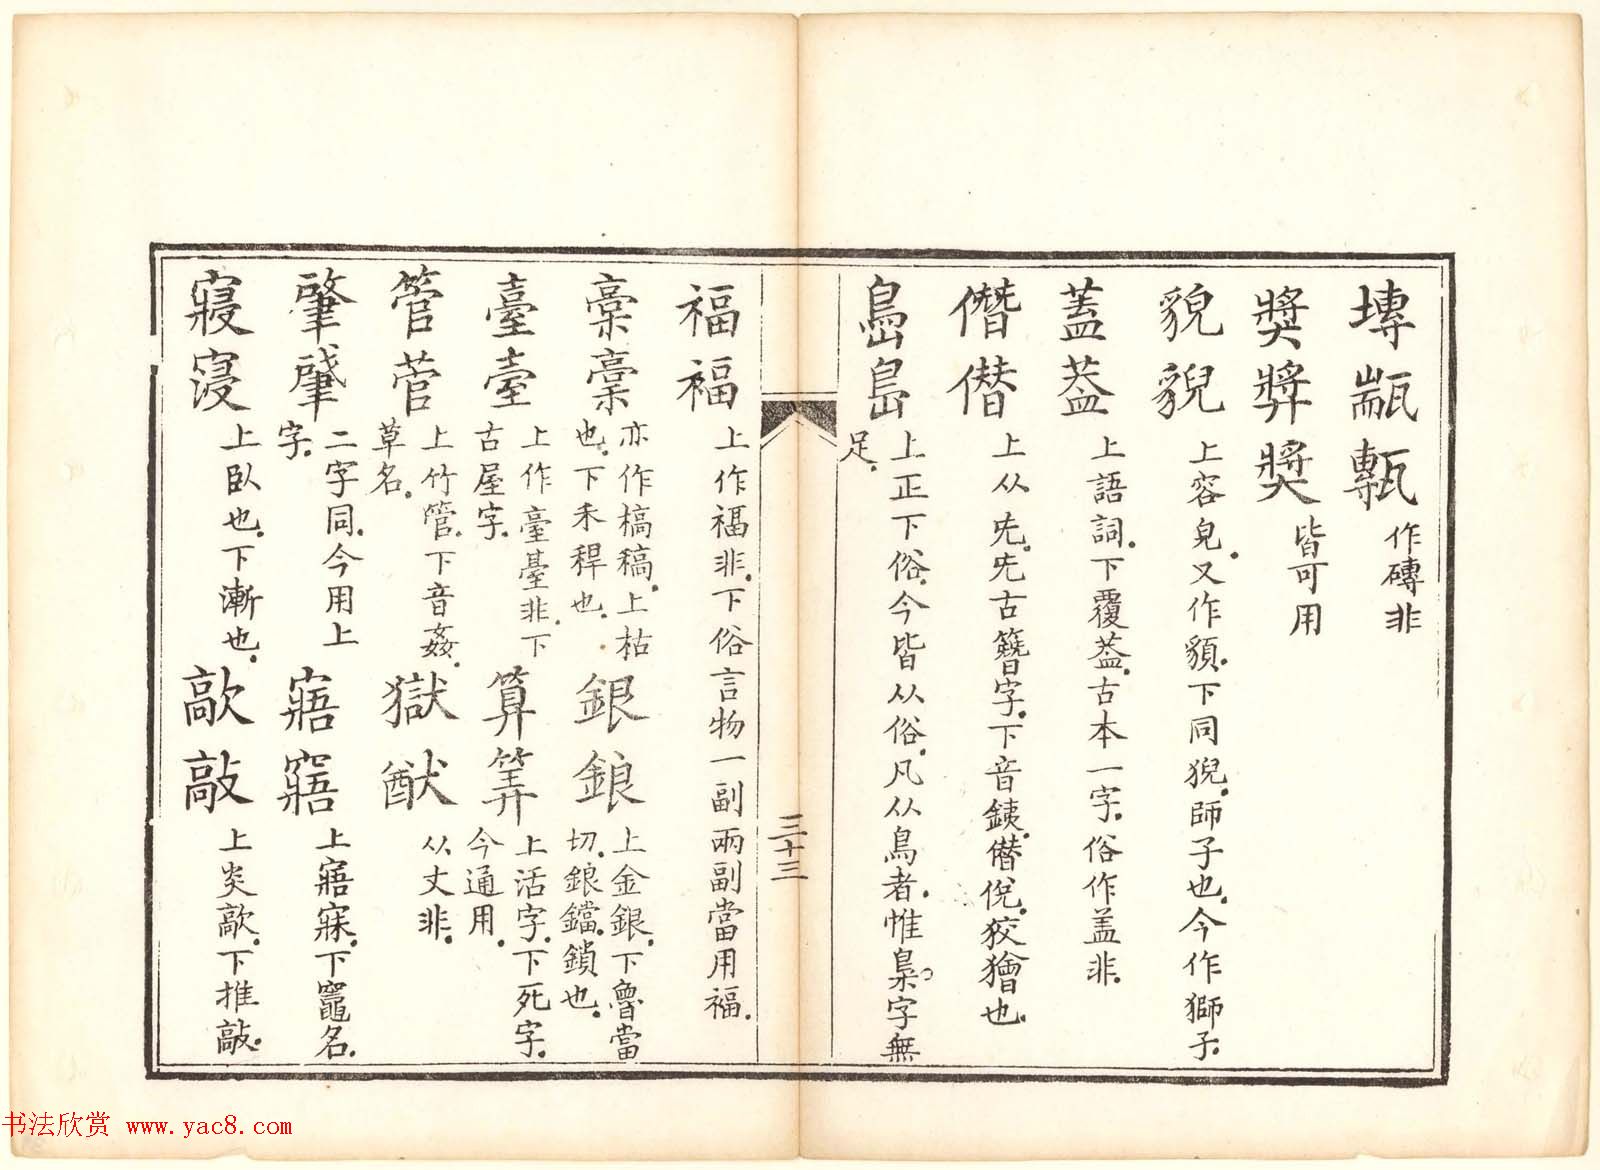 塼甎甎作磚非
獎奬獎皆可用
貌貎上容皃又作䫉下同猊師子也今作獅子
蓋葢上語詞下覆葢古本一字俗作盖非
僭僣上从兂兂古簪字下音銕僣侻狡獪也
島㠀上正下俗今皆从俗凡从鳥者惟梟字無
足
三十三
福褔上作福非下俗言物一副兩副當用褔
稾藁亦作槁稿上枯
也下禾稈也
銀鋃上金銀下魯當
切鋃鐺鎖也
臺臺上作臺䑓非下
古屋字
算筭上活字下死字
今通用
管菅上竹管下音姦
草名
獄猷从丈非
肈肇二字同今用上
字
寤竈上寤寐下竈名
寢寖上臥也下漸也
歊敲上炎歊下推敲
书法欣赏 www.yac8.com